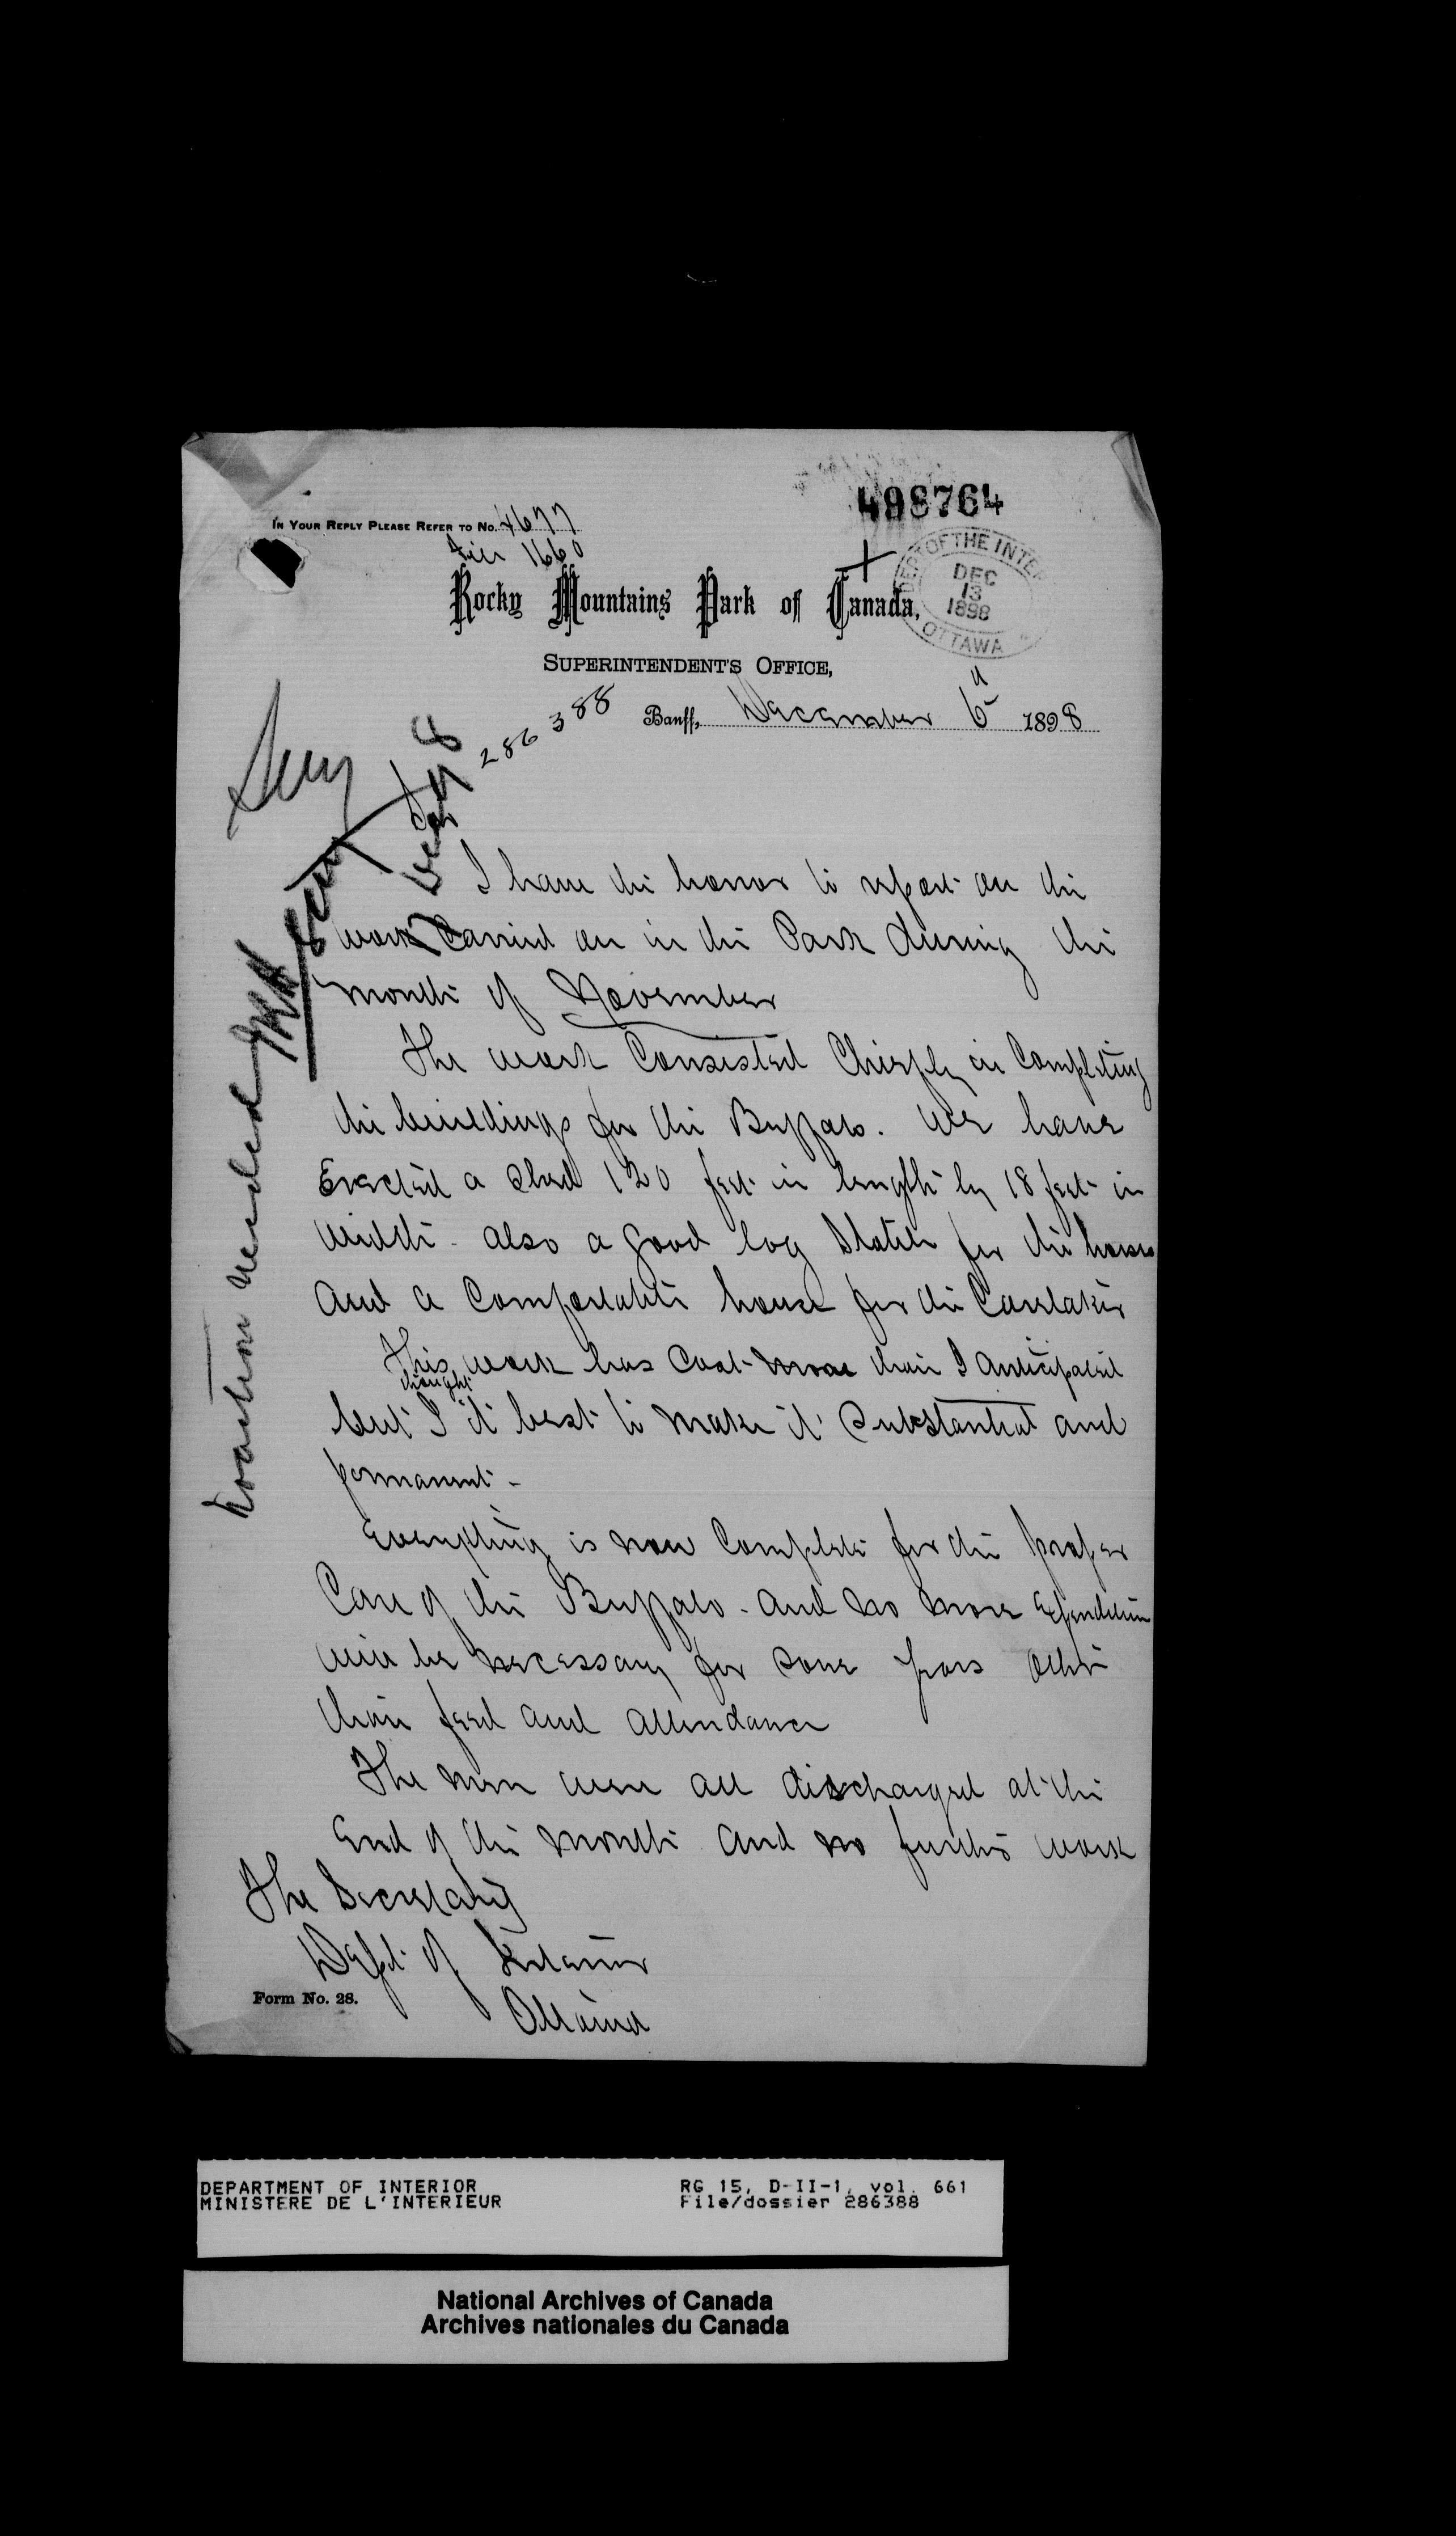 498764
IN YOUR REPLY PLEASE REFER TO NO. 4677
File 1660
DEPT OF THE INTER
DEC
13
1898
OTTAWA
Rocky Mountains Park of Canada,
SUPERINTENDENT'S OFFICE,
286388
Banff, December 6th 1898
I have the honor to report on the
work carried on in the Park during the
month of November
The work Consisted Chiefly in Completing
the buildings for the Buffalo. We have
Erected a shed 120 feet in length by 18 feet in
width - also a good log Stable for the horses
and a Comfortable house for the Caretaker
This work has Cost more than I anticipated
thought
but I it best to make it substantial and
permanent -
Everything is now Complete for the proper
Care of the Buffalo - and no more Expenditure
will be necessary for some years other
than feed and attendance
The men were all discharged at the
End of the month and no further work
The Secretary
Dept. of Interior
Ottawa
Form No. 28.
No action needed
Dec 98
DEPARTMENT OF INTERIOR
MINISTERE DE L'INTERIEUR
RG 15, D-II-1, vol. 661
File/dossier 286388
National Archives of Canada
Archives nationales du Canada